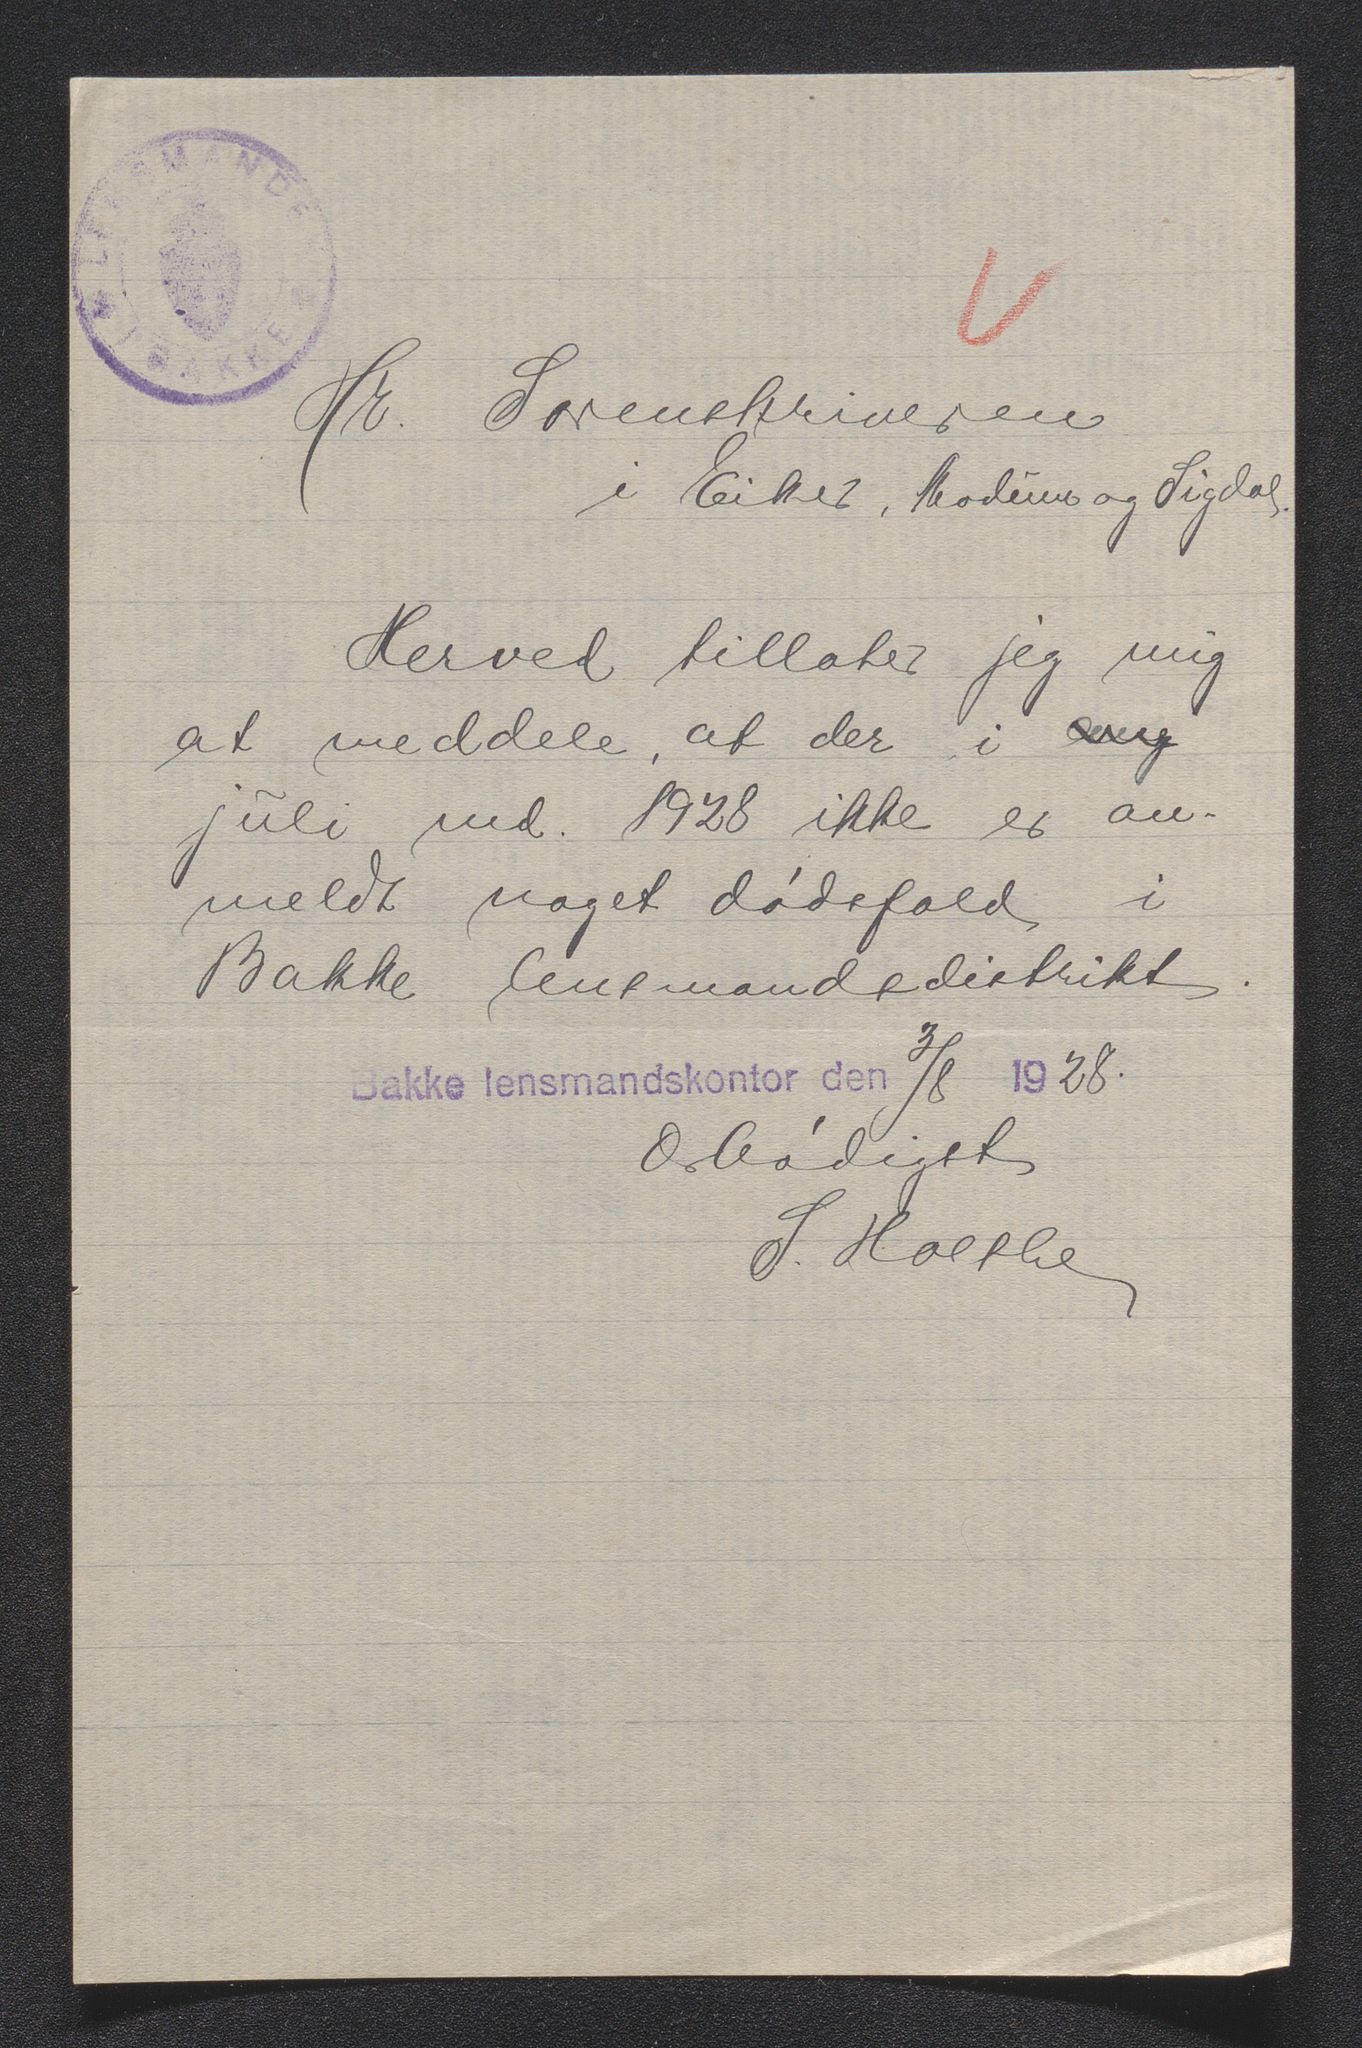 LENSMANDEN
I BAKKE
Hr. Sorenskriveren
i Eiker, Modum og Sigdal.
Herved tillater jeg mig
at meddele, at der i
juli md. 1928 ikke er an-
meldt noget dødsfald i
Bakke lensmandsdistrikt.
Bakke lensmandskontor den 3/8 1928.
Ærbødigst
S.